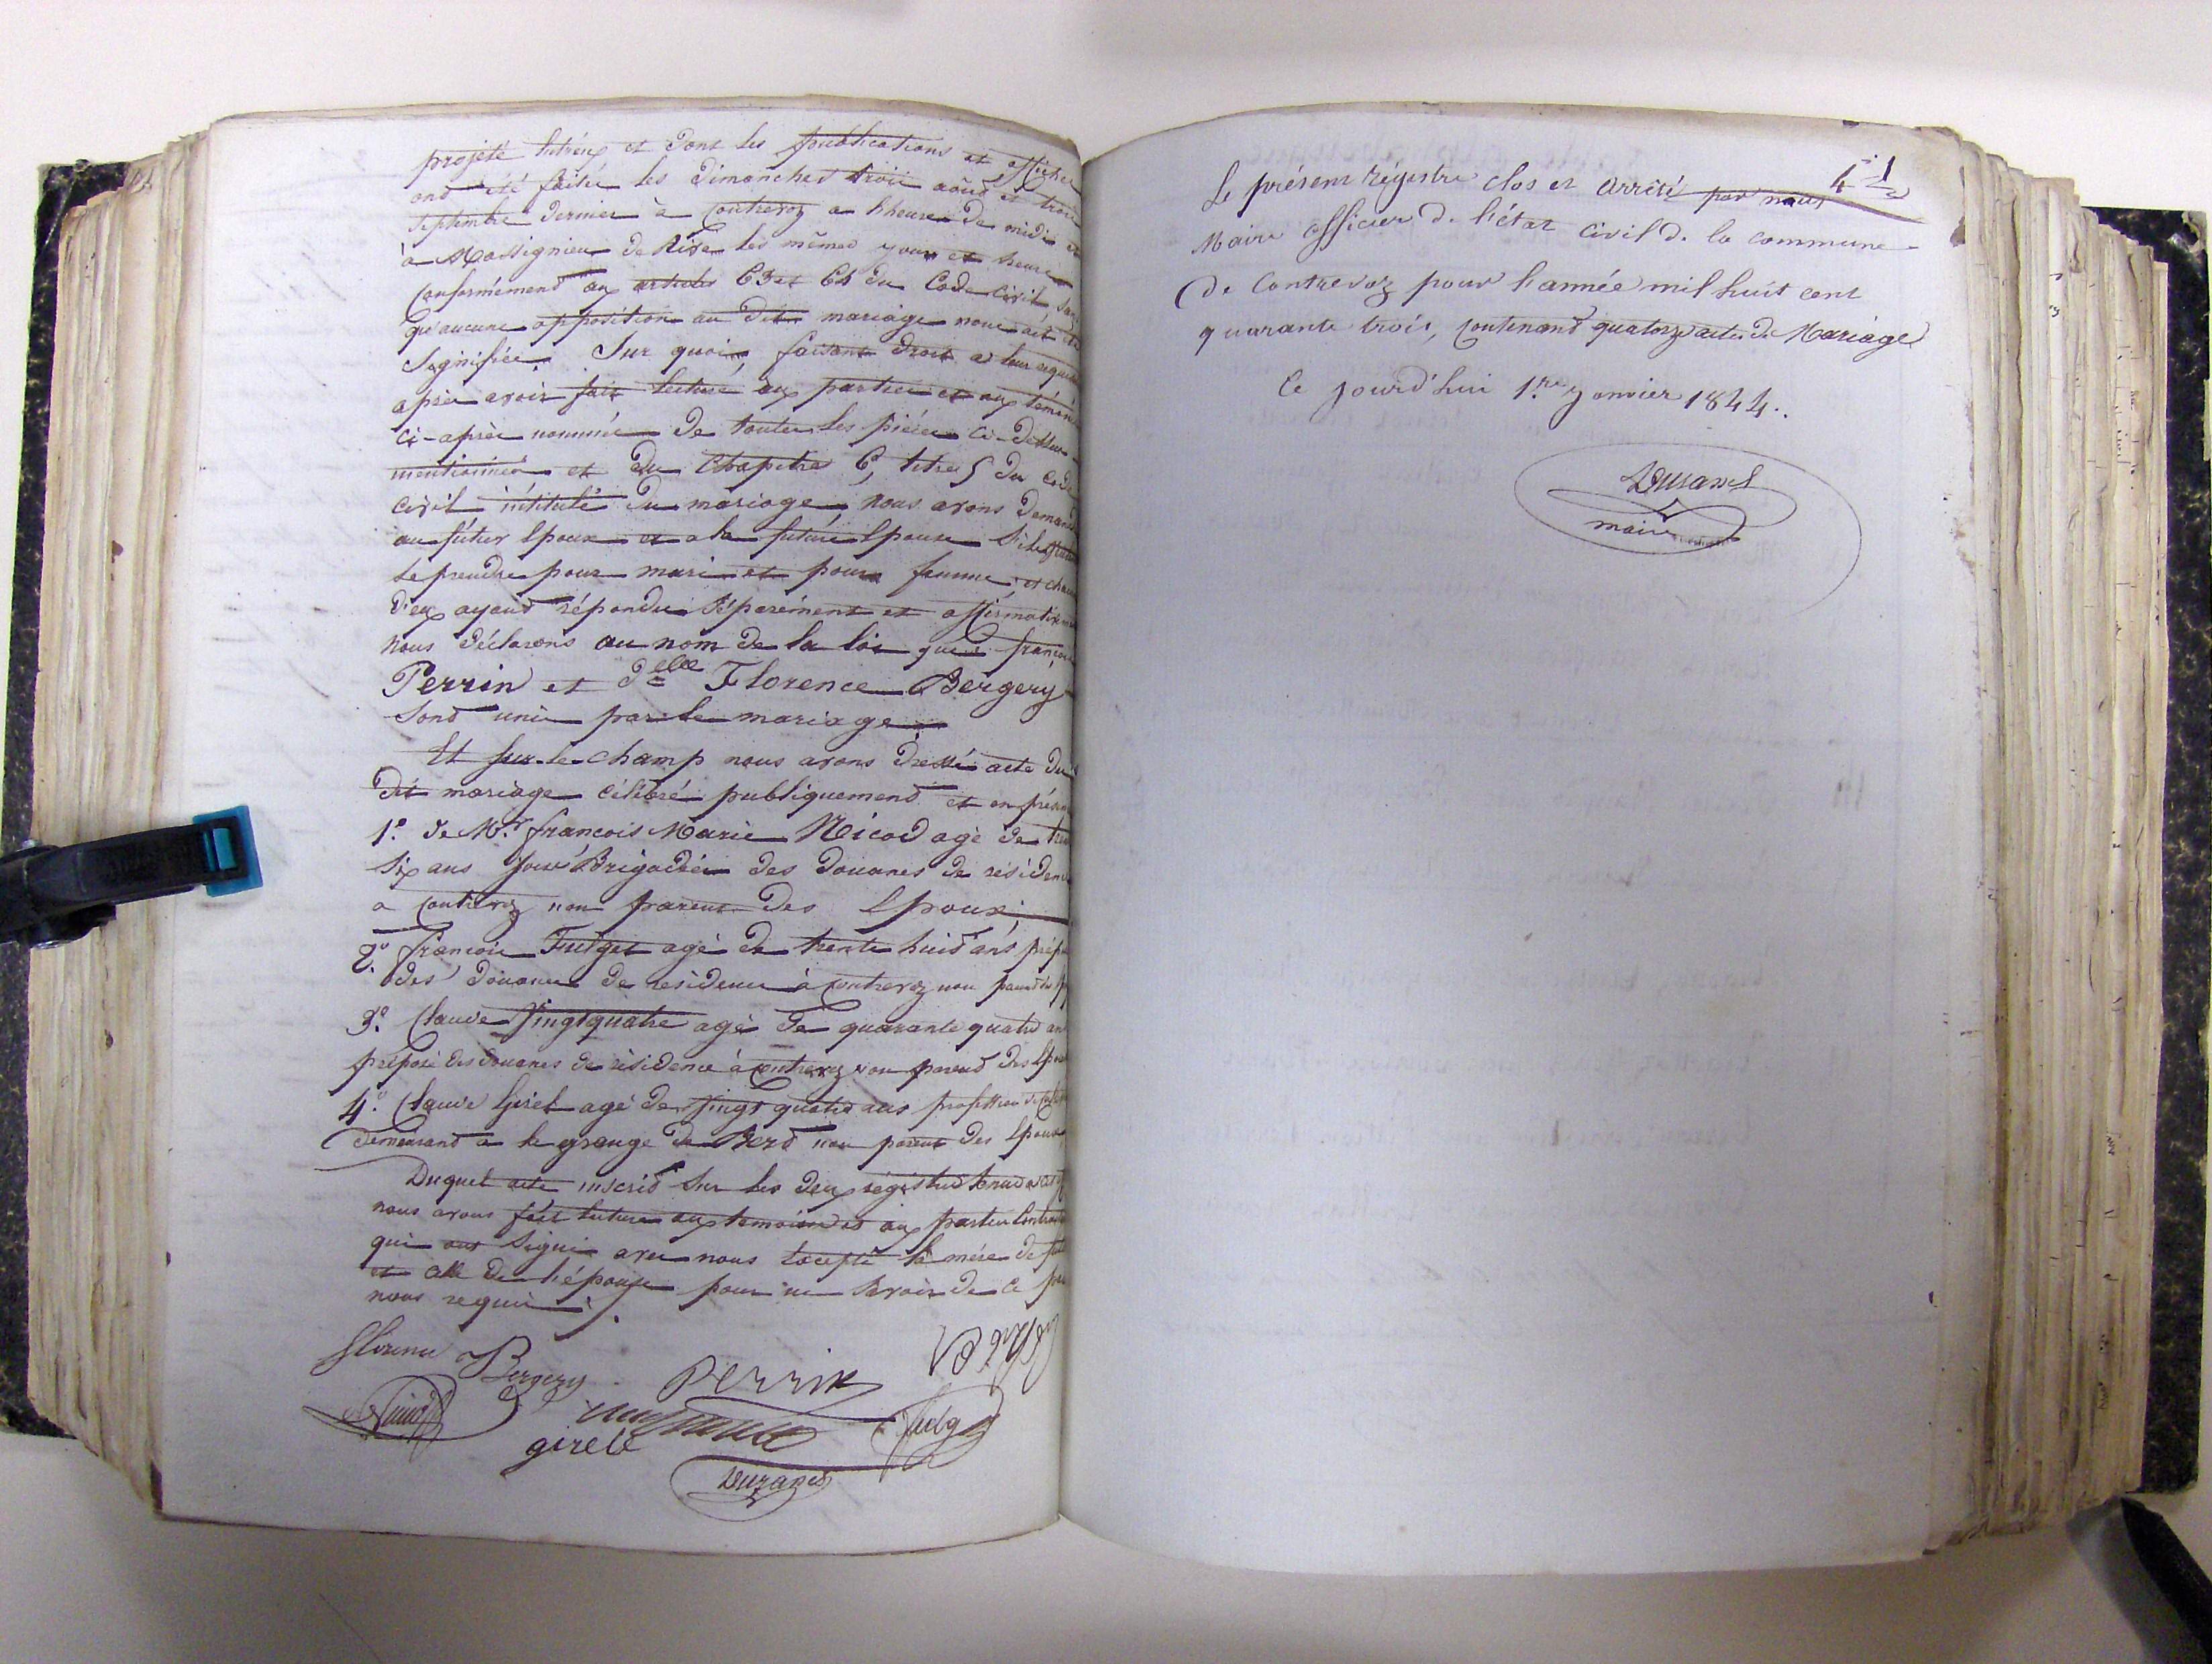 projeté entr'eux et dont les publications et affiches
ont été faites les dimanches trois août et trois
septembre dernier à Contrevoz a l'heure de midi et
à Massignieu de Rive les mêmes jours et heure
Conformément aux articles 63 et 64 du Code civil sans
qu'aucune opposition au dit mariage nous ait été
Signifiée. Sur quoi, faisant droit a leur
après avoir fait lecture aux parties et aux témoins
ci-après nommés de toutes les pièces ci-dessus
mentionnées et du Chapitre 6, titre 5 du code
civil intitulé du mariage, nous avons demandé
au futur Epoux et a la future Epouse s'ils
se prendre pour mari et pour femme, et chacun
d'eux ayant répondu séparément et affirmativement
nous déclarons au nom de la loi que françois
Perrin et d.elle Florence Bergery
sont unis par le mariage
Et sur-le-champ nous avons dressé acte du
dit mariage célébré publiquement et en présence
1.º de M.r françois Marie Nicod agé de trente
six ans Sous Brigadier des douanes de résidence
a Contrevoz non parent des Epoux;
2º françois Fulget agé de trente huit ans préposé
des douanes de résidence à Contrevoz non parent des
3.º Claude Vingtquatre agé de quarante quatre ans
préposé des douanes de résidence à Contrevoz non parent des Epoux
4.º Claude Girel agé de vingt quatre ans profession de
demeurant a la grange de Berd non parent des Epoux
Duquel acte inscrit sur les deux régistres tenus
nous avons fait lecture aux temoins et aux parties
qui ont signé avec nous excepté la mère de
et celle de l'épouse pour ne savoir de ce
nous requis.
florence Bergery
Perrin
Nicod
girel
fulget
Durand
41
Le présent régistre clos et arrêté par nous
Maire officier de l'état civil de la commune
de Contrevoz pour l'année mil huit cent
quarante trois, contenant quatorze actes de Mariage
Ce jourd'hui 1.re Janvier 1844.
Durand
maire